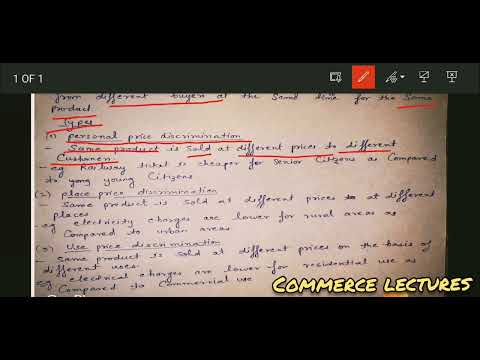 1 OF 1
from different buyers at the same time for the same
product.
Types
(1) personal price discrimination
- Same product is sold at different prices to different
Customer.
- eg Railway ticket is cheaper for Senior Citizens as Compared
to young Citizens
(2) place price discrimination
Same product is sold at different prices at different
places
eg electricity charges are lower for rural areas as
Compared to urban areas
(3) Use price discrimination
- Same product is sold at different prices on the basis of
different uses.
eg electrical charges are lower for residential use as
Compared to Commercial use
COMMERCE LECTURES